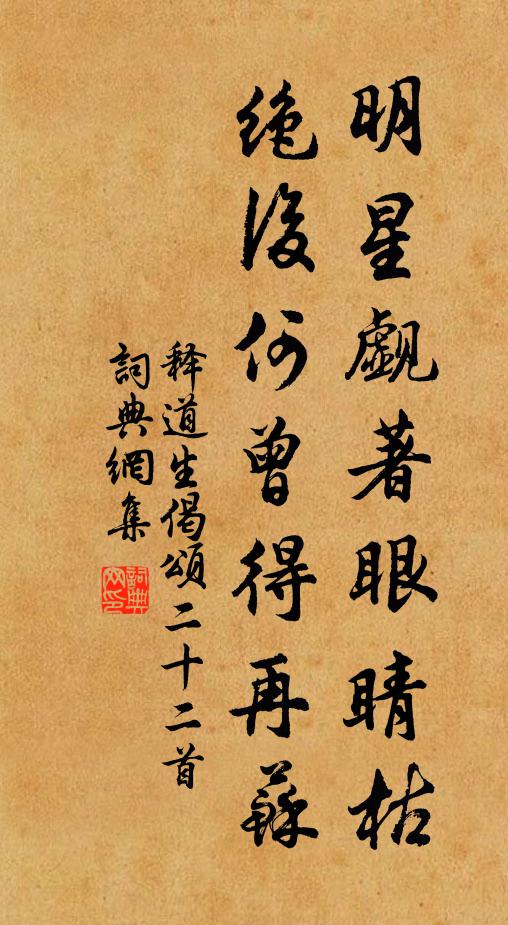 明星覷著眼睛枯
絶後何曾得再蘇
释道生偈頌二十二首
詞典網集
詞典网印